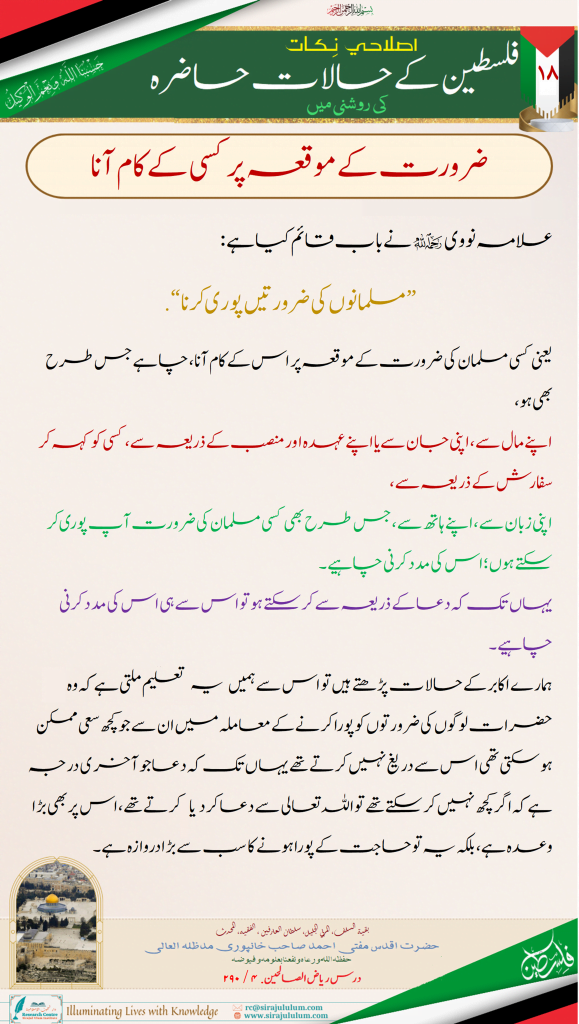 بسم اللہ الرحمن الرحیم
اصلاحي نِکات
۱۸
فلسطین کے حالات حاضرہ
کی روشنی میں
حَسْبُنَا اللّٰهُ وَنِعْمَ الْوَكِيْل
ضرورت کے موقعہ پر کسی کے کام آنا
علامہ نووی رحمہ اللہ نے باب قائم کیا ہے:
”مسلمانوں کی ضرورتیں پوری کرنا“.
یعنی کسی مسلمان کی ضرورت کے موقعہ پر اس کے کام آنا، چاہے جس طرح
بھی ہو،
اپنے مال سے، اپنی جان سے یا اپنے عہدہ اور منصب کے ذریعہ سے، کسی کو کہہ کر
سفارش کے ذریعہ سے،
اپنی زبان سے، اپنے ہاتھ سے، جس طرح بھی کسی مسلمان کی ضرورت آپ پوری کر
سکتے ہوں؛ اس کی مدد کرنی چاہیے۔
یہاں تک کہ دعا کے ذریعہ سے کر سکتے ہو تو اس سے ہی اس کی مدد کرنی
چاہیے۔
ہمارے اکابر کے حالات پڑھتے ہیں تو اس سے ہمیں یہ تعلیم ملتی ہے کہ وہ
حضرات لوگوں کی ضرورتوں کو پورا کرنے کے معاملہ میں ان سے جو کچھ سعی ممکن
ہو سکتی تھی اس سے دریغ نہیں کرتے تھے یہاں تک کہ دعا جو آخری درجہ
ہے کہ اگر کچھ نہیں کر سکتے تھے تو اللہ تعالی سے دعا کر دیا کرتے تھے، اس پر بھی بڑا
وعدہ ہے، بلکہ یہ تو حاجت کے پورا ہونے کا سب سے بڑا دروازہ ہے۔
بقیۃ السلف، سلطان العارفین، الفقیہ،
حضرت اقدس مفتی احمد صاحب خانپوری مدظلہ العالی
حفظہ اللہ ورعاہ ونفعنا بعلومہ وفیوضہ
درس ریاض الصالحین. ۴ / ۲۹۰
فلسطین
Research Centre
Illuminating Lives with Knowledge
rc@sirajululum.com
www.sirajululum.com